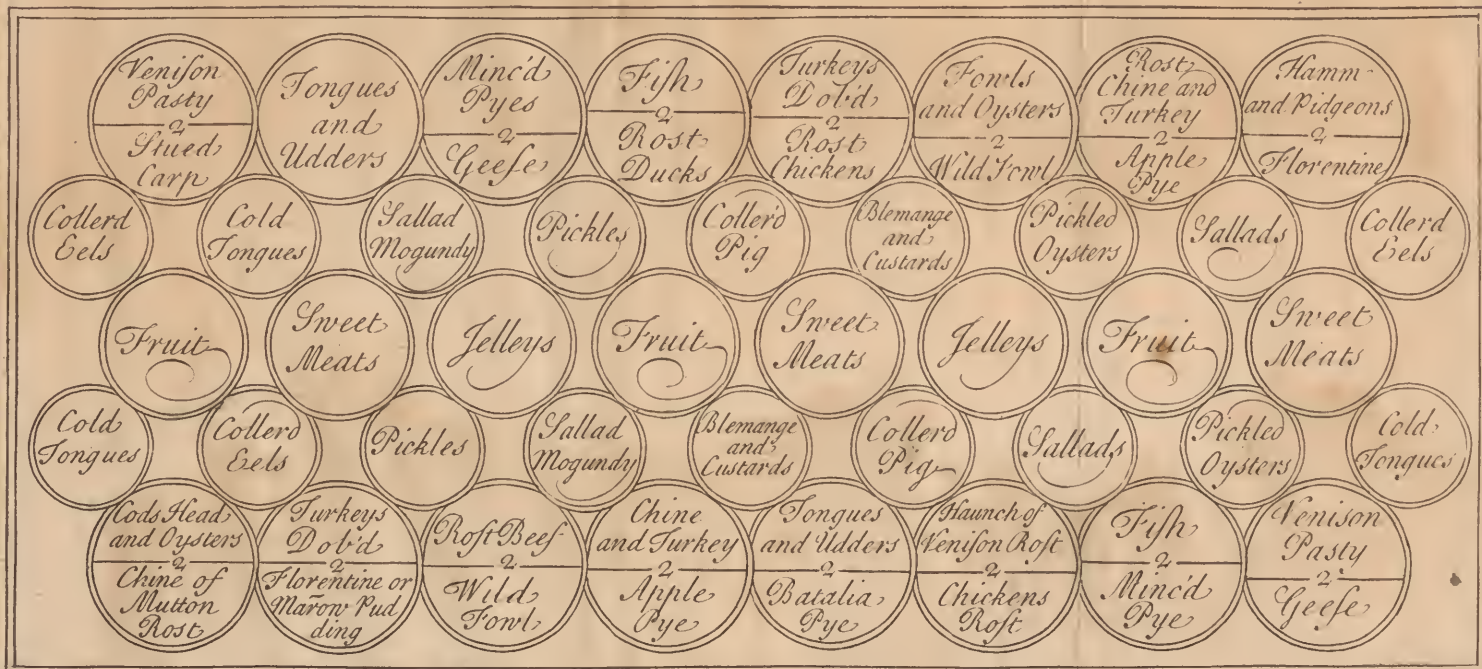 Veniſon
Pasty
2
Stued
Carp
Tongues
and
Udders
Minc'd
Pyes
2
Geeſe
Fiſh
2
Rost
Ducks
Turkeys
Dob'd
2
Rost
Chickens
Fowls
and Oysters
2
Wild Fowl
Rost
Chine and
Turkey
2
Apple
Pye
Hamm
and Pidgeons
2
Florentine
Collerd
Eels
Cold
Tongues
Sallad
Mogundy
Pickles
Coller'd
Pig
Blemange
and
Custards
Pickled
Oysters
Sallads
Collerd
Eels
Fruit
Sweet
Meats
Jelleys
Fruit
Sweet
Meats
Jelleys
Fruit
Sweet
Meats
Cold
Tongues
Collerd
Eels
Pickles
Sallad
Mogundy
Blemange
and
Custards
Collerd
Pig
Sallads
Pickled
Oysters
Cold
Tongues
Cods Head
and Oysters
2
Chine of
Mutton
Rost
Turkeys
Dob'd
2
Florentine or
Marõw Pud
ding
Roſt Beef
2
Wild
Fowl
Chine
and Turkey
2
Apple
Pye
Tongues
and Udders
2
Batalia
Pye
Haunch of
Veniſon Roſt
2
Chickens
Roſt
Fiſh
2
Minc'd
Pye
Venison
Pasty
2
Geeſe